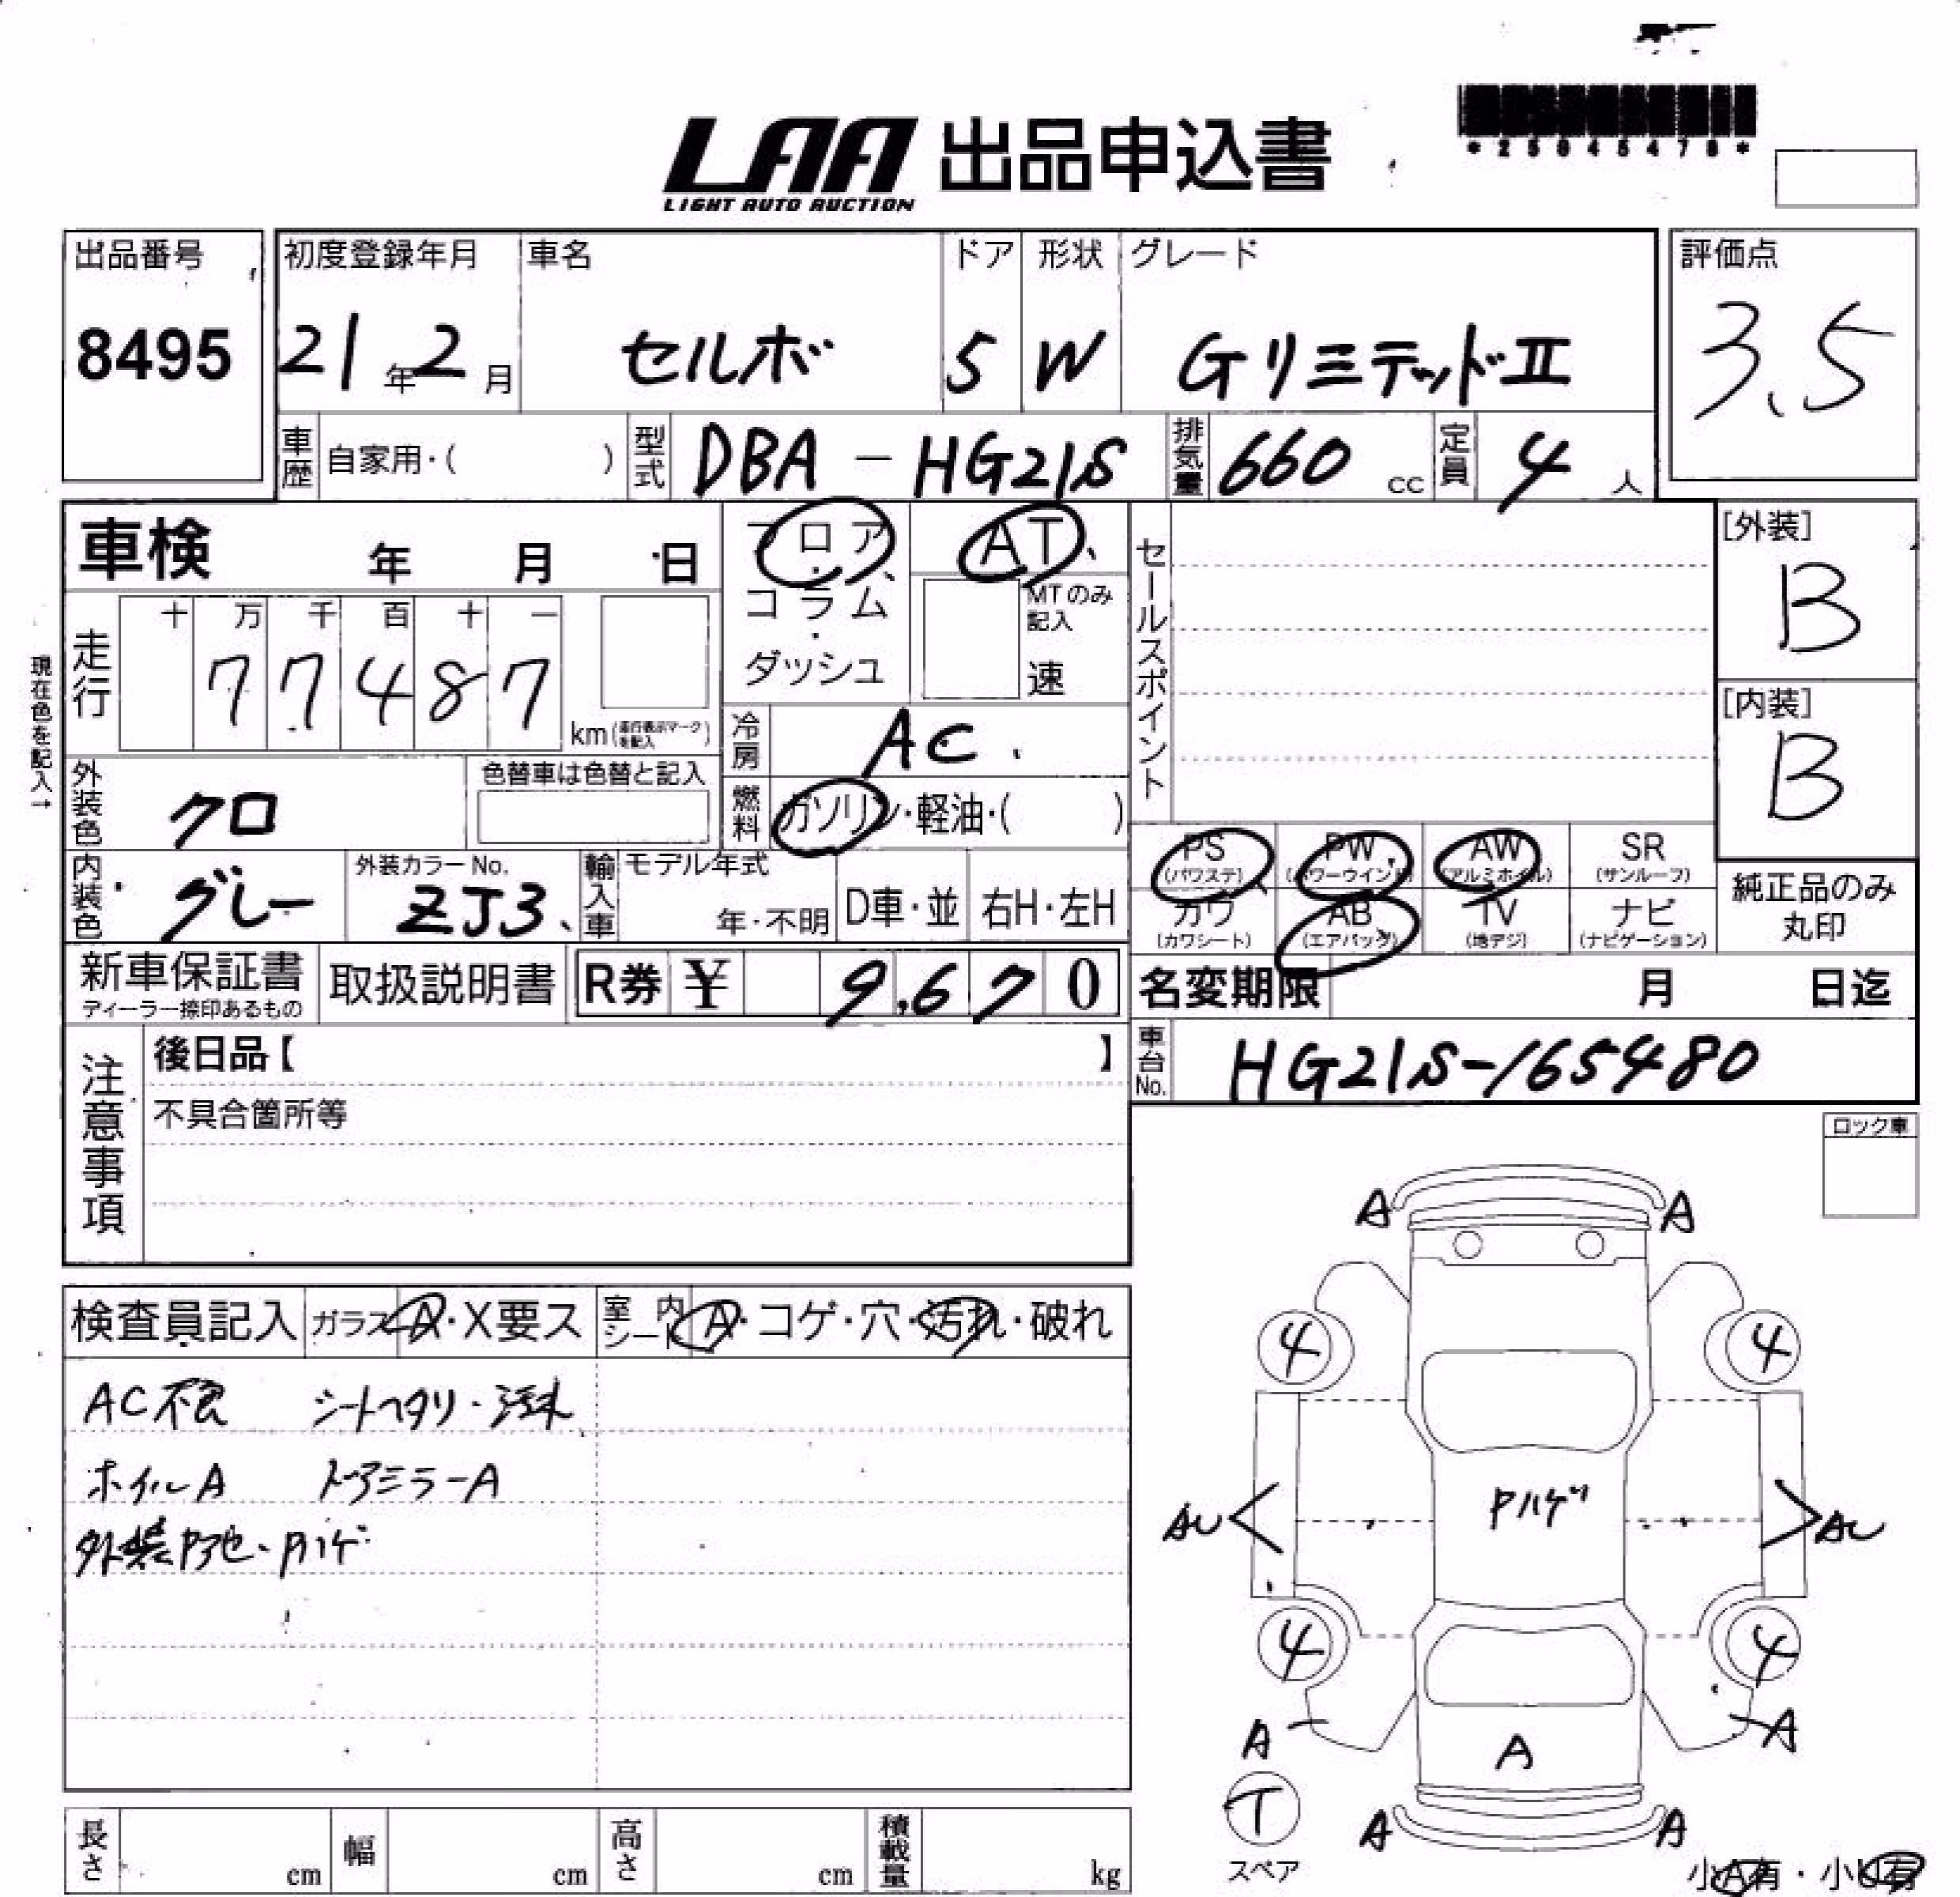 *25045478*
LAA 出品申込書
LIGHT AUTO AUCTION
出品番号
8495
初度登録年月
21年2月
車名
セルボ
ドア
5
形状
W
グレード
GリミテッドⅡ
評価点
3.5
車歴 自家用・( )
型式 DBA-HG21S
排気量 660 cc
定員 4人
車検 年 月 日
フロア・
コラム・
ダッシュ
AT
MTのみ
記入
速
セールスポイント
[外装]
B
[内装]
B
現在色を記入→
走行
十 万 千 百 十 一
7 7 4 8 7
km(走行表示マークを記入)
冷房 AC
燃料 ガソリン・軽油・( )
外装色 クロ
色替車は色替と記入
内装色 グレー
外装カラーNo.
ZJ3
輸入車
モデル年式
年・不明
D車・並
右H・左H
PS
(パワステ)
PW
(パワーウインド)
AW
(アルミホイル)
SR
(サンルーフ)
カワ
(カワシート)
AB
(エアバッグ)
TV
(地デジ)
ナビ
(ナビゲーション)
純正品のみ
丸印
新車保証書
ディーラー捺印あるもの
取扱説明書
R券 ¥ 9,670
名変期限 月 日迄
車台No. HG21S-165480
注意事項
後日品【 】
不具合箇所等
ロック車
検査員記入 ガラス A・X要ス
室内シート A・コゲ・穴・汚れ・破れ
AC不良 シートヘタリ・汚れ
ホイルA ドアミラーA
外装Pアセ・Pハゲ
A A
4 4
AU Pハゲ AU
4 4
A A A
T
スペア
A A
小A有・小U有
長さ cm
幅 cm
高さ cm
積載量 kg